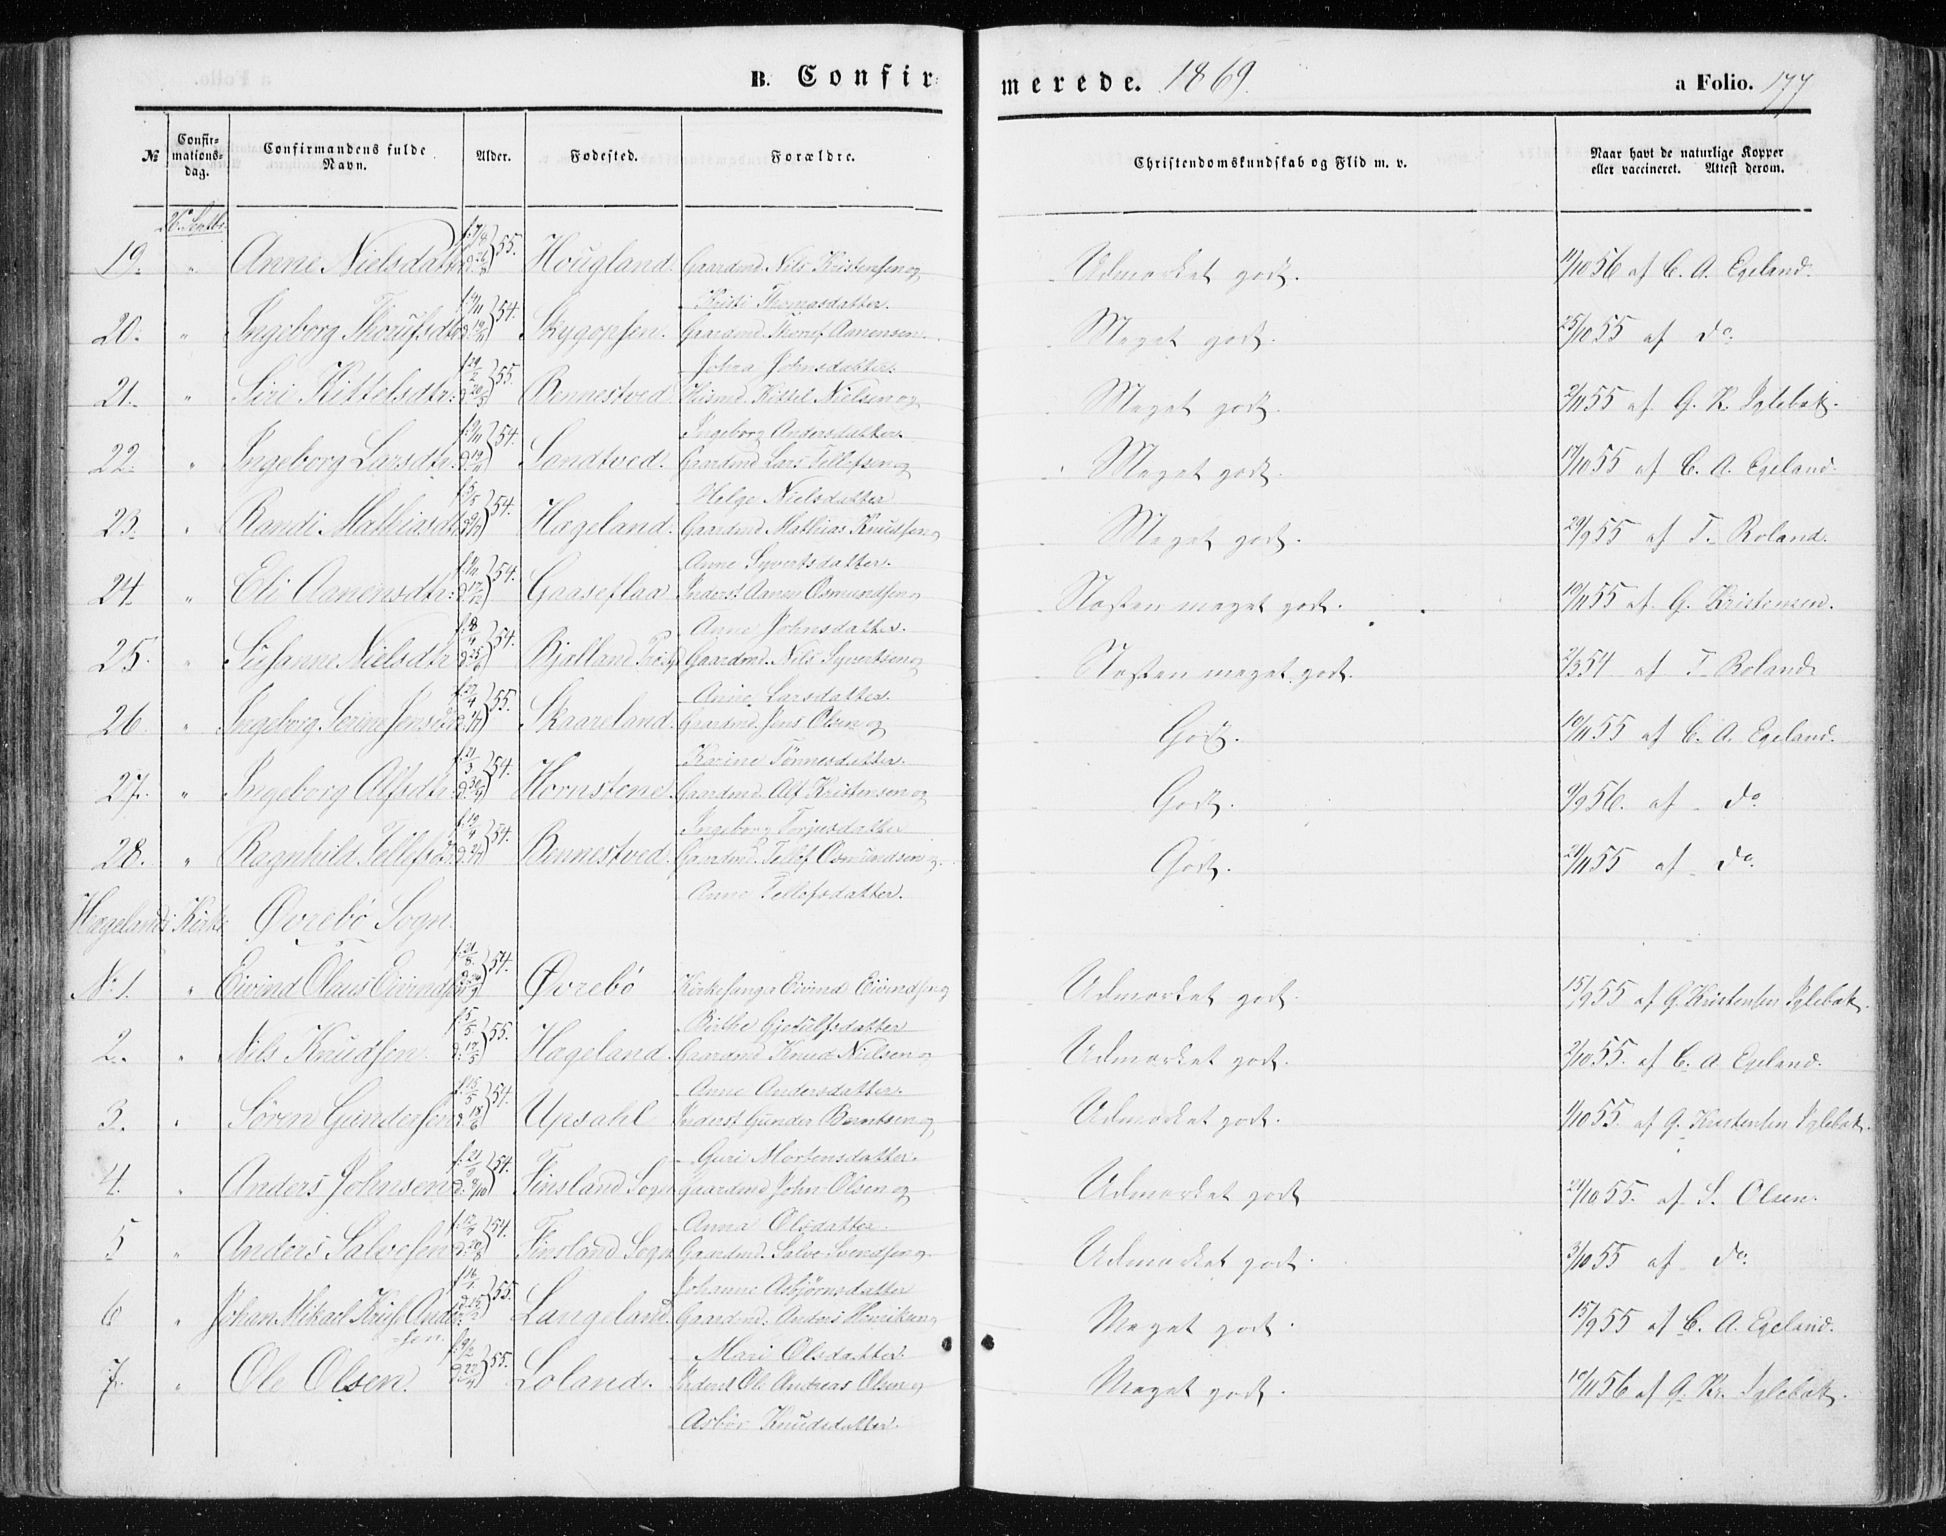 B. Confir=
merede. 1869.
a Folio. 177
№
Confir=
mations=
dag.
Confirmandens fulde
Navn.
Alder.
Fødested.
Forældre.
Christendomskundskab og Flid m. v.
Naar havt de naturlige Kopper
eller vaccineret. Attest derom.
26. Septbr.
19. " Anne Nielsdatt 55. Hougland. Gaardmd. Nils Kristensen og Udmærket godt. 11/10 56 af C. A. Egeland.
Kristi Thomasdatter.
20. " Ingeborg 54. Gaardmd. Aanensen Meget godt. 25/10 55 af do
Johnsdatter.
21. " Siri Kittelsdtr. 55. Bennestved Kittel Nielsen og Meget godt. 2/11 55 af G. K. Iglebæk.
Ingeborg Andersdatter.
22. " Ingeborg Larsdtr. 54. Sandtved. Gaardmd Lars Tellefsen og Meget godt. 17/10 55 af C. A. Egeland.
Helge Nielsdatter
23. " Randi Mathiasdtr 54. Hægeland. Gaardmd Mathias Knudsen og Meget godt. 29/9 55 af T. Roland.
Anne Syvertsdatter.
24. " Eli Aanensdtr. 54. Gaaseflaa Inderst Aanen Osmundsen og Næsten meget godt. 10/11 55 af G. Kristensen.
Anne Johnsdatter.
25. " Susanne Nielsdtr 54. Bjelland Gaardmd. Nils Syvertsen og Næsten meget godt. 2/3 54 af T. Roland
Anne Larsdatter.
26 " Ingeborg Serine Jensd 55. Skaareland. Gaardmd. Jens Olsen og Godt. 10/11 55 af C. A. Egeland.
Karine Tönnesdatter.
27. " Ingeborg Alfsdtr. 54. Hornstene. Gaardmd. Alf Kristensen og Godt. 9/9 56. af do
Ingeborg Torjusdatter
28. " Ragnhild Tellefsd 54. Bennestved. Gaardmd. Tellef Osmundsen og Godt. 21/11 55 af do
Anne Tellefsdatter.
Hægelands Kirke Övrebö Sogn.
No 1. " Eivind Olaus Eivindsen 54. Övrebö Kirkesanger Eivind Eivindsen og Udmærket godt. 15/9 55 af G. Kristensen Iglebæk.
Birthe Gjeruldsdatter
2. " Nils Knudsen. 55. Hægeland. Gaardmd Knud Nielsen og Udmærket godt. 2/10 55. af C. A Egeland.
Anne Andersdatter.
3. " Sören Gundersen 54. Upsahl Inderst Gunder Berntsen og Udmærket godt. 1/10 55. af G. Kristensen Iglebæk.
Guri Mortensdatter.
4. " Anders Johnsen 54. Finsland Sogn Gaardmd John Olsen og Udmærket godt 21/10 55. af S. Olsen.
Anna Olsdatter.
5 " Anders Salvesen 54. Finsland Sogn Gaardmd. Salve Svendsen og Udmærket godt. 3/10 55 af do
Johanne Asbjörnsdatter
6 " Johan Mikael Krist. Ander= 55. Langeland. Gaardmd. Anders Henriksen og Meget godt. 15/9 55 af C. A. Egeland.
sen.
Mari Olsdatter.
7. " Ole Olsen. 55. Loland. Inderst Ole Andreas Olsen og Meget godt. 10/11 56 af G. Kr. Iglebæk.
Asbör Knudsdatter.